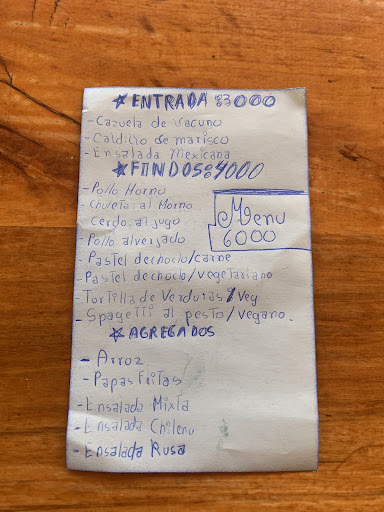 ★ ENTRADA $3000
- Cazuela de vacuno
- Caldillo de marisco
- Ensalada Mexicana
★ FONDOS $4000
- Pollo Horno
- Chuleta al Horno
Cerdo al jugo
- Pollo alverjado
Menu
6000
- Pastel dechoclo/carne
- Pastel dechoclo/vegetariano
- Tortilla de Verduras/Veg
- Spagetti al pesto/vegano.
★ AGREGADOS
- Arroz
- Papas Fritas
- Ensalada Mixta
- Ensalada Chilena
- Ensalada Rusa